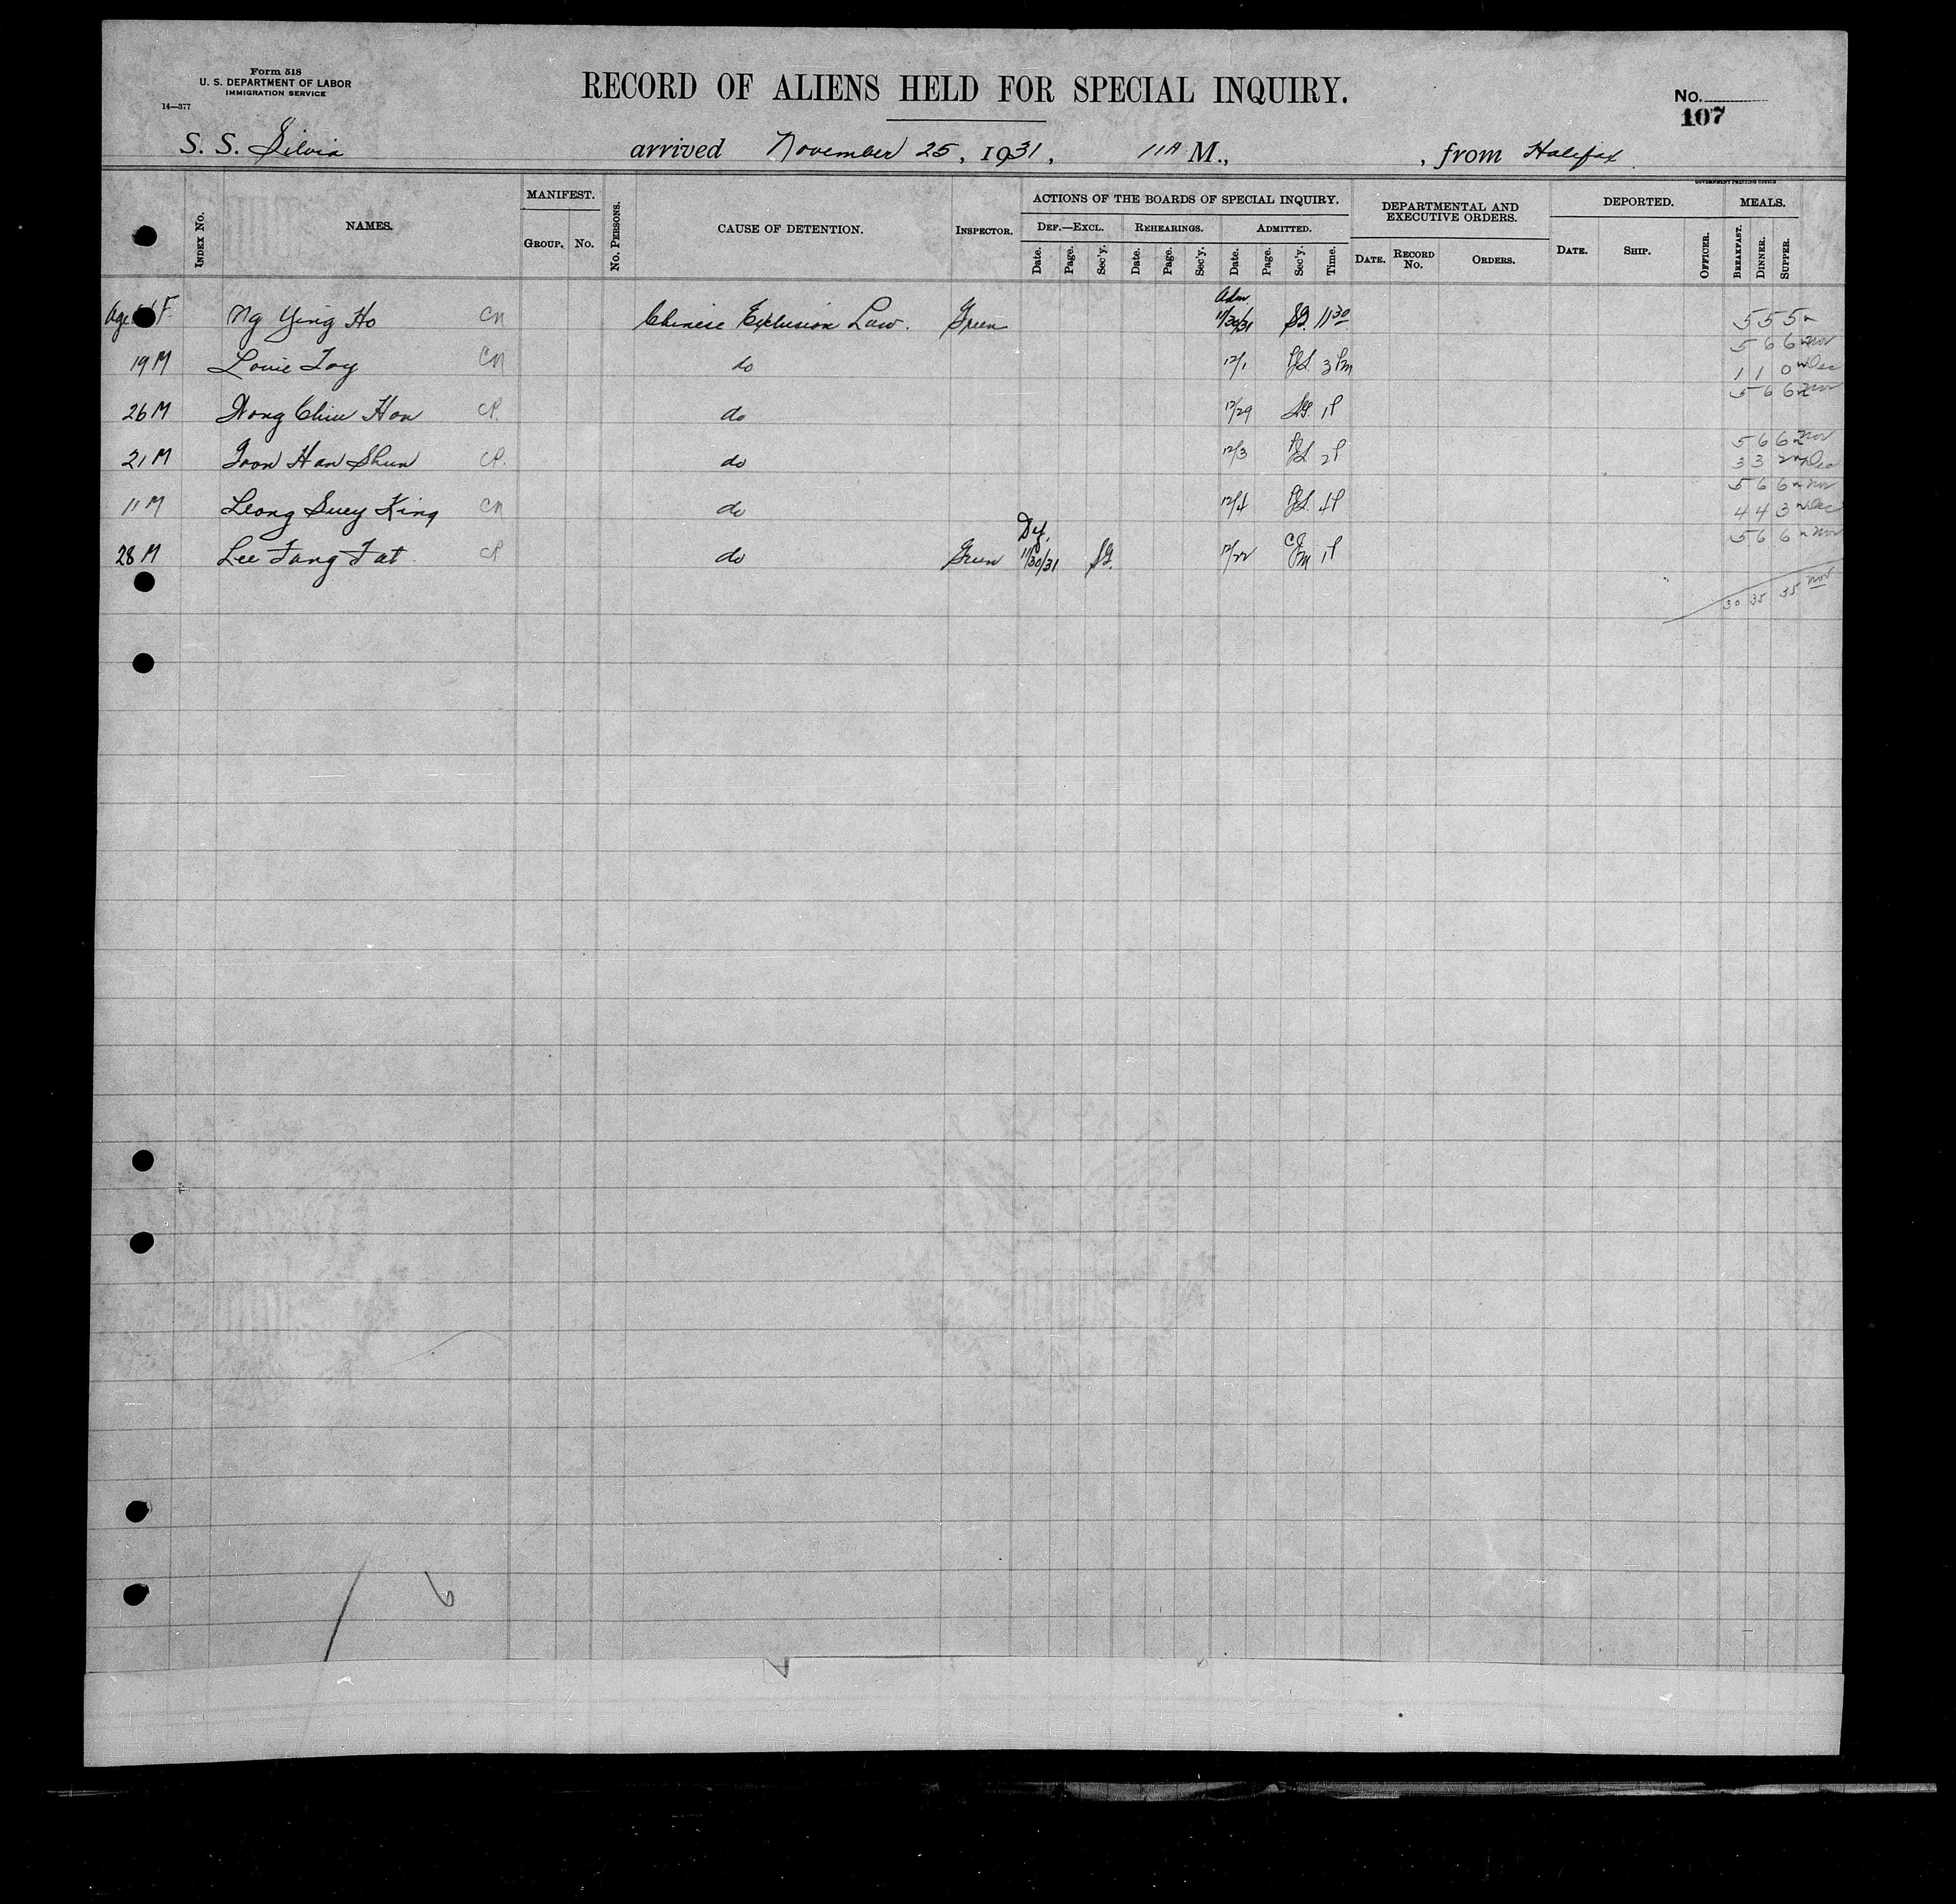 Form 518
U. S. DEPARTMENT OF LABOR
IMMIGRATION SERVICE
14—377
RECORD OF ALIENS HELD FOR SPECIAL INQUIRY.
No.
107
S. S. Silvia arrived November 25, 1931, 11A M., , from Halifax
GOVERNMENT PRINTING OFFICE
INDEX No. NAMES. MANIFEST. GROUP. No. No. PERSONS. CAUSE OF DETENTION. INSPECTOR. ACTIONS OF THE BOARDS OF SPECIAL INQUIRY. DEF.—EXCL. Date. Page. Sec'y. REHEARINGS. Date. Page. Sec'y. ADMITTED. Date. Page. Sec'y. Time. DEPARTMENTAL AND EXECUTIVE ORDERS. DATE. RECORD No. ORDERS. DEPORTED. DATE. SHIP. OFFICER. MEALS. BREAKFAST. DINNER. SUPPER.
Age F Ng Ying Ho CN Chinese Exclusion Law. Green Adm. 11/30/31 SG. 11 30 5 5 5 n
5 6 6 n Nov
19 M Louie Toy CN do 12/1 3 Pm 1 1 0 n Dec
5 6 6 n Nov
26 M Wong Chiu Hon CP. do 12/29 SG. 1P
5 6 6 n Nov
21 M Toon Han Shun CP. do 12/3 2P 3 3 2 n Dec
5 6 6 n Nov
11 M Leong Suey King CN do 12/4 4P 4 4 3 n Dec
5 6 6 n Nov
28 M Lee Fang Fat CP do Green Def. 11/30/31 SG. 12/22 1P
30 35 35 Nov
6